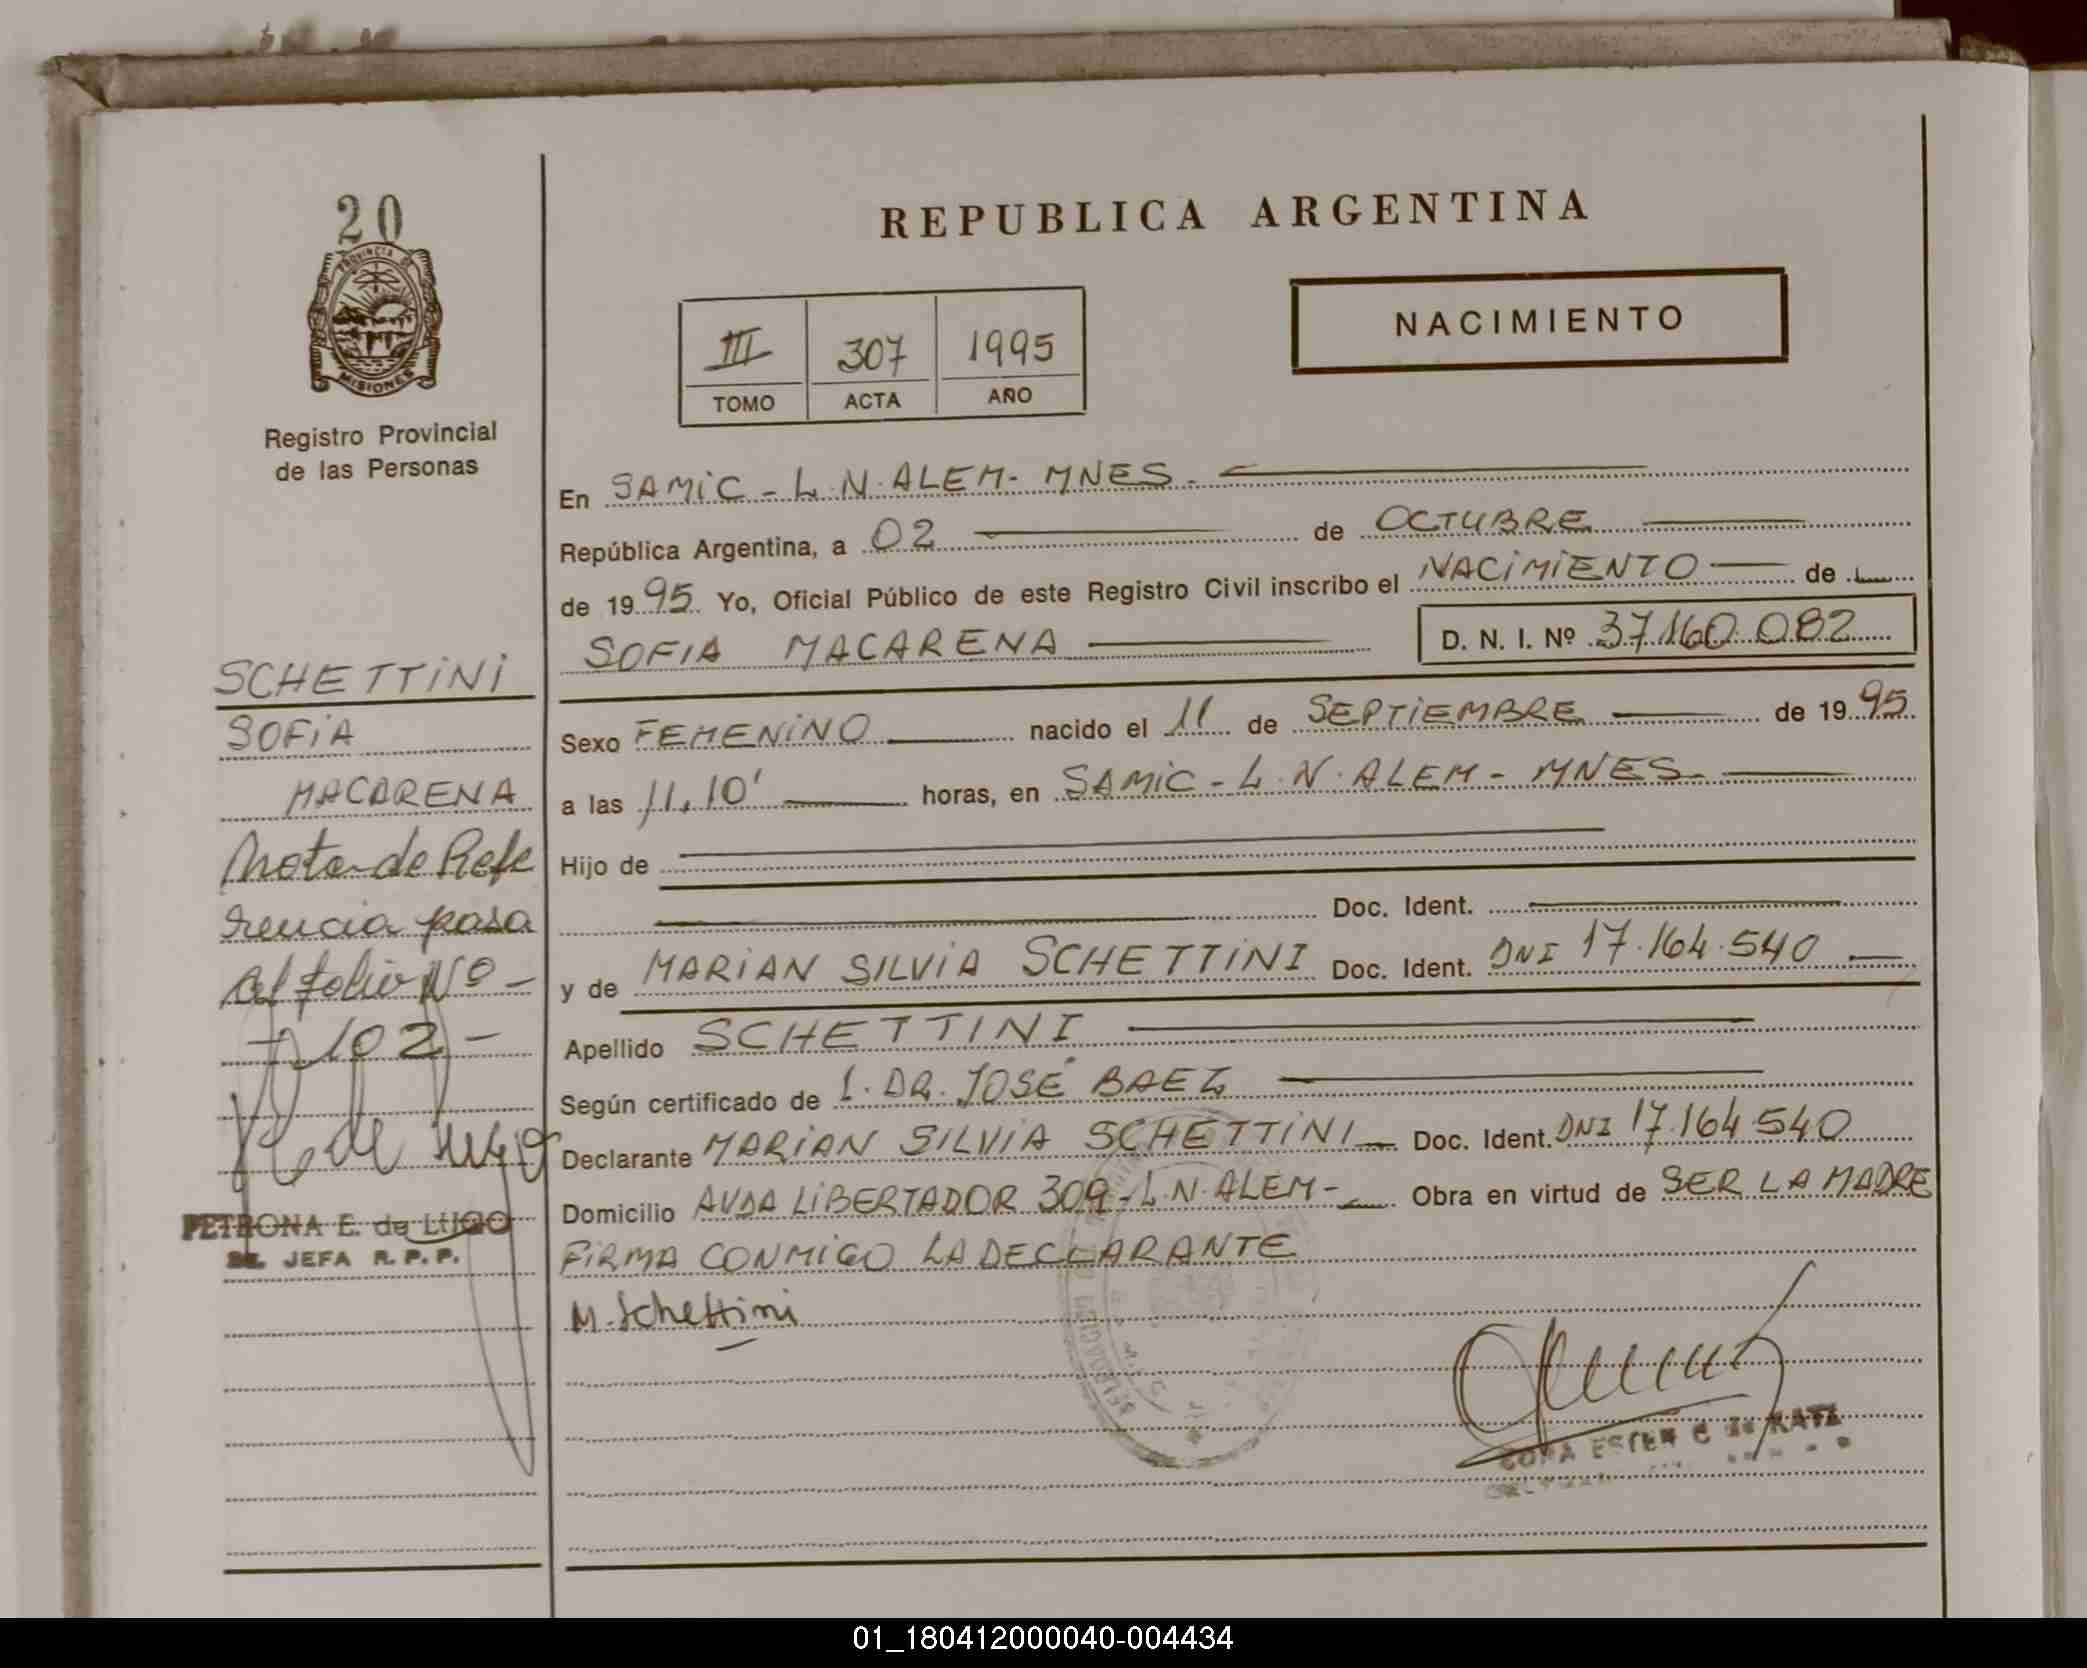 20
PROVINCIA DE
MISIONES
Registro Provincial
de las Personas
REPUBLICA ARGENTINA
NACIMIENTO
III 307 1995
TOMO ACTA AÑO
En SAMIC - L.N. ALEM - MNES -
República Argentina, a 02 de OCTUBRE
de 1995 Yo, Oficial Público de este Registro Civil inscribo el NACIMIENTO de
SOFIA MACARENA D. N. I. Nº 37.160.082
Sexo FEMENINO nacido el 11 de SEPTIEMBRE de 1995
a las 11.10' horas, en SAMIC - L.N. ALEM - MNES -
Hijo de
Doc. Ident.
y de MARIAN SILVIA SCHETTINI Doc. Ident. DNI 17.164.540
Apellido SCHETTINI
Según certificado de L. DR. JOSÉ BAEZ
Declarante MARIAN SILVIA SCHETTINI Doc. Ident. DNI 17.164.540
Domicilio AVDA LIBERTADOR 309 - L.N. ALEM - Obra en virtud de SER LA MADRE
FIRMA CONMIGO LA DECLARANTE
M. Schettini
ESTER C de KATZ
SCHETTINI
SOFIA
MACARENA
Nota de Refe
rencia pasa
al folio Nº -
- 102 -
PETRONA E. de LUGO
JEFA R. P. P.
01_180412000040-004434